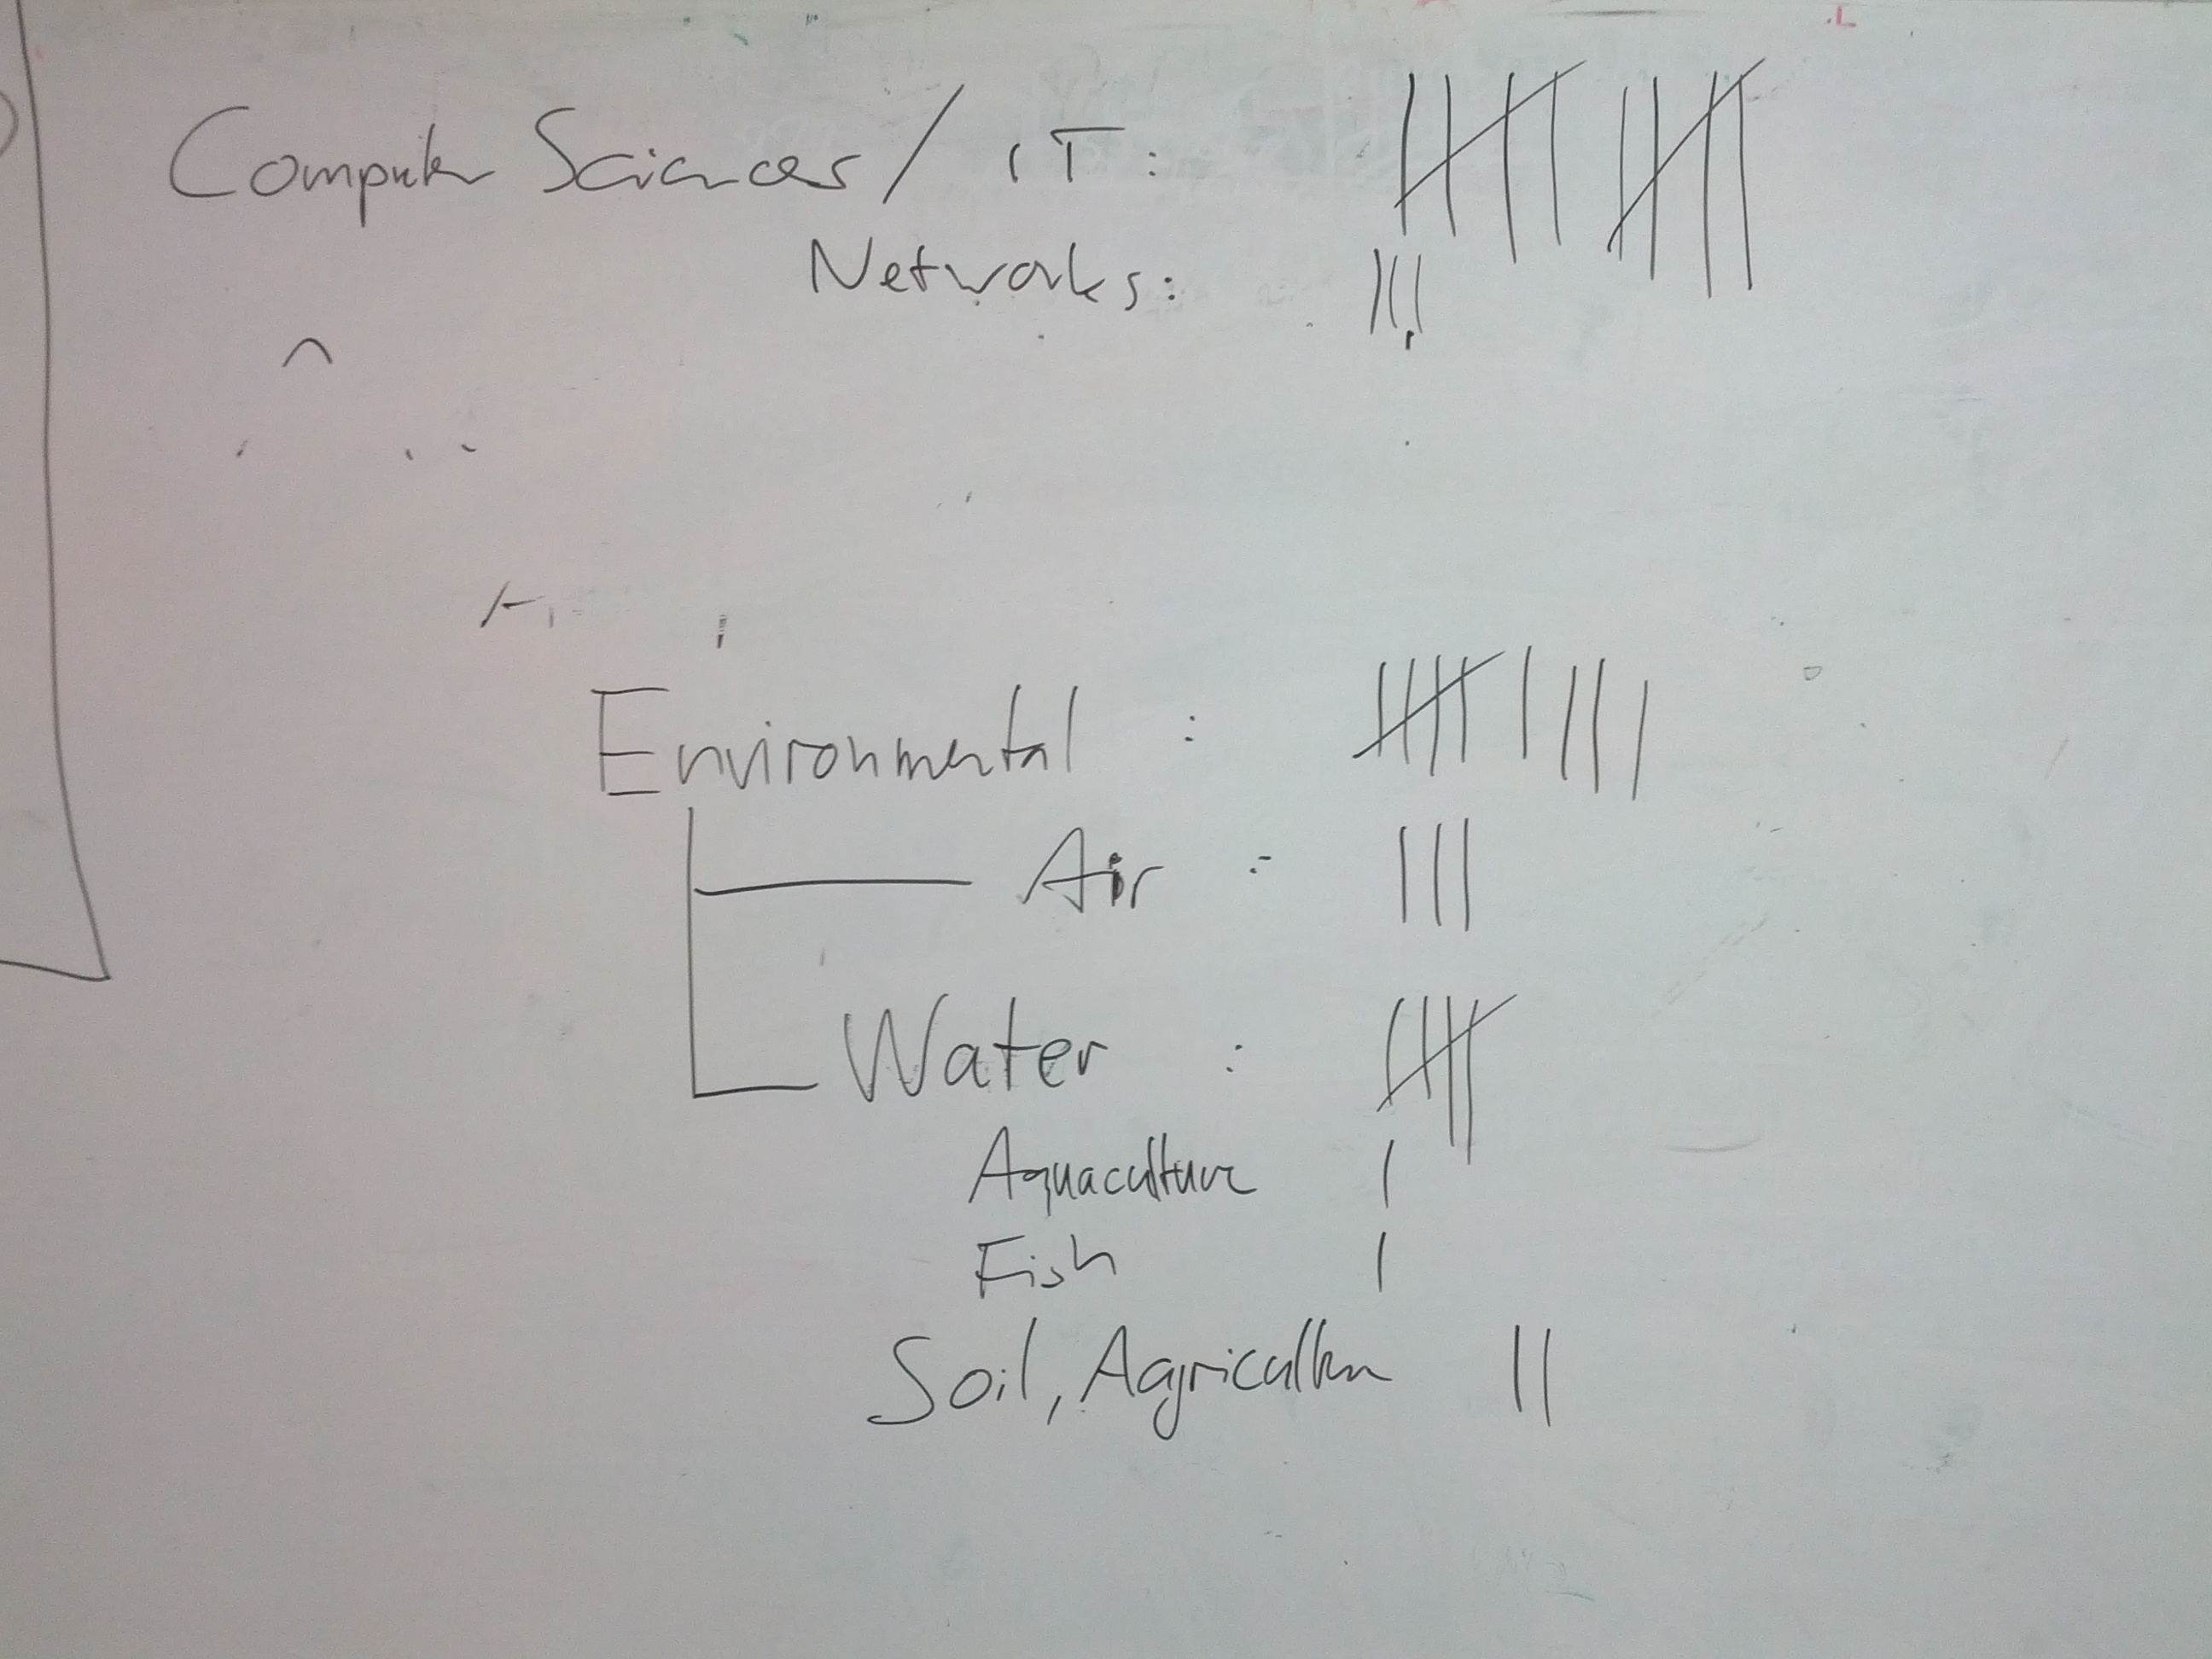 Computer Sciences / IT: |||| ||||
Networks: |||
Environmental : |||| ||||
Air : |||
Water : ||||
Aquaculture |
Fish |
Soil, Aagriculture ||